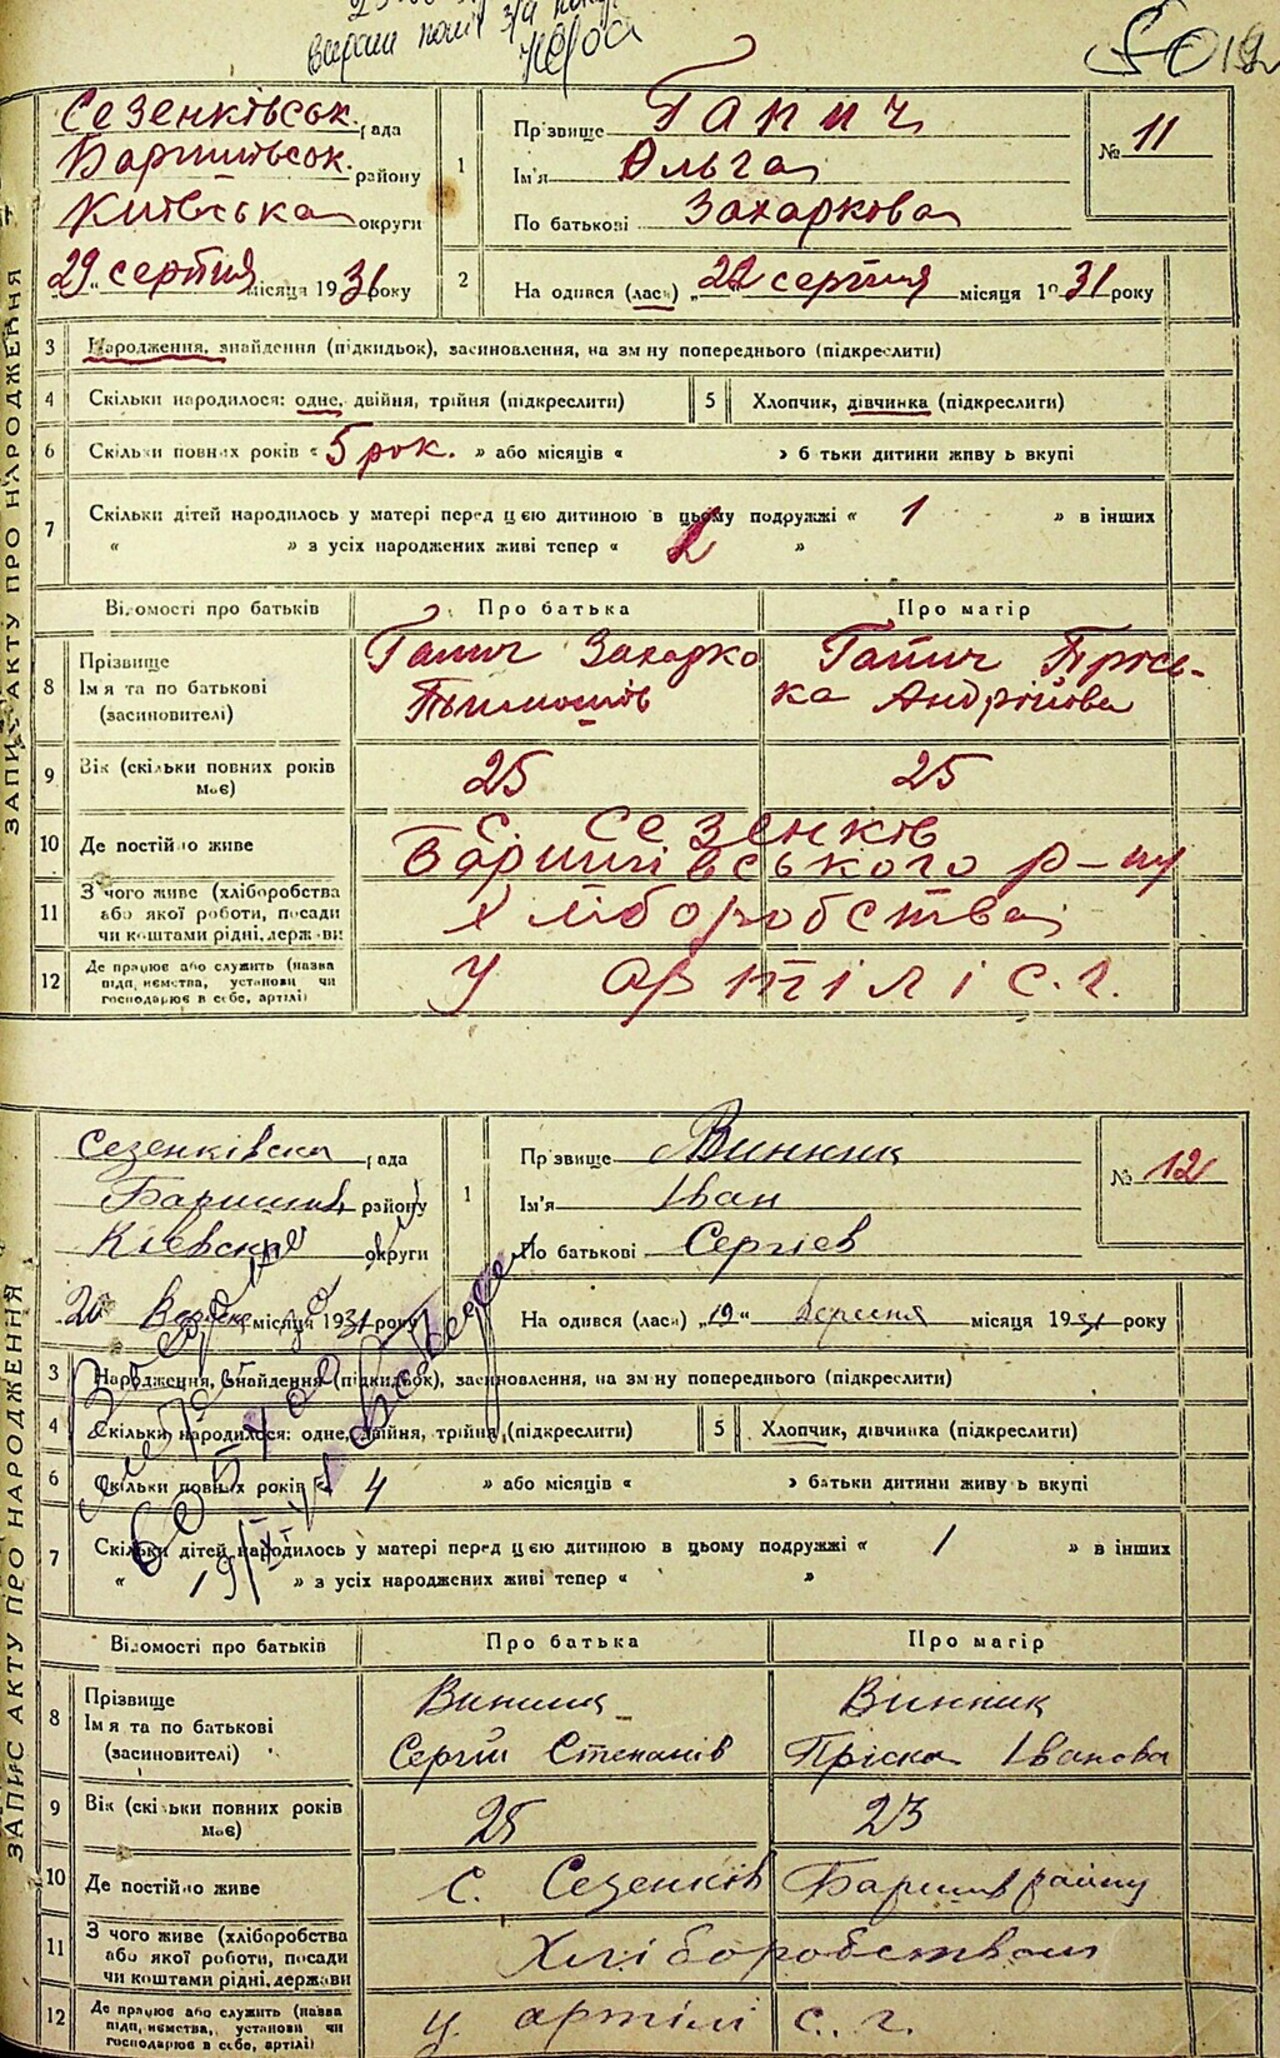 Сезенківськ. рада
Баришівськ. району
Київська округи
"29" серпня місяця 1931 року
1
Прізвище Гапич
Ім'я Ольга
По батькові Захаркова
№ 11
2
На одився (лась) "22" серпня місяця 1931 року
ЗАПИС АКТУ ПРО НАРОДЖЕННЯ
3 Народження, знайдення (підкидьок), засиновлення, на зм ну попереднього (підкреслити)
4 Скільки народилося: одне, двійня, трійня (підкреслити)
5 Хлопчик, дівчинка (підкреслити)
6 Скільки повних років « 5 рок. » або місяців « » б тьки дитини живу ь вкупі
7 Скільки дітей народилось у матері перед цією дитиною в цьому подружжі « 1 » в інших
« » з усіх народжених живі тепер « »
Відомості про батьків Про батька Про матір
8 Прізвище
Ім я та по батькові
(засиновителі)
Гапич Захарко
Тимошів
Гапич Прісь-
ка Андрійова
9 Вік (скільки повних років
має)
25 25
10 Де постійно живе
с. Сезенків
Баришівського р-ну
11 З чого живе (хліборобства
або якої роботи, посади
чи коштами рідні, держави
Хліборобства
12 Де працює або служить (назва
підприємства, установи чи
господарює в себе, артілі)
У артілі с.г.
Сезенківска рада
Баришів району
Кіевска округи
20 місяця 1931 року
1
Прізвище Винник
Ім'я Іван
По батькові Сергіев
№ 12
На одився (лась) "19" вересня місяця 1931 року
ЗАПИС АКТУ ПРО НАРОДЖЕННЯ
3 Народження, знайдення (підкидьок), засиновлення, на зм ну попереднього (підкреслити)
4 Скільки народилося: одне, двійня, трійня (підкреслити)
5 Хлопчик, дівчинка (підкреслити)
6 Скільки повних років « 4 » або місяців « » батьки дитини живу ь вкупі
7 Скільки дітей народилось у матері перед цією дитиною в цьому подружжі « 1 » в інших
« » з усіх народжених живі тепер « »
Відомості про батьків Про батька Про матір
8 Прізвище
Ім я та по батькові
(засиновителі)
Винник
Сергій Степанів
Винник
Пріска Іванова
9 Вік (скільки повних років
має)
25 23
10 Де постійно живе
с. Сезенків Баришів району
11 З чого живе (хліборобства
або якої роботи, посади
чи коштами рідні, держави
Хліборобством
12 Де працює або служить (назва
підприємства, установи чи
господарює в себе, артілі)
у артілі с. г.